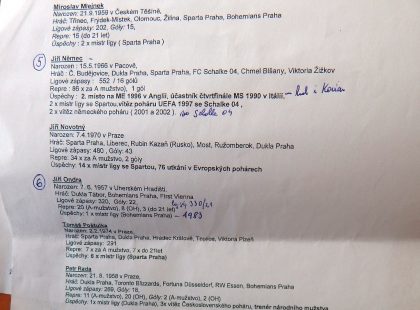 Miroslav Mlejnek
Narozen: 21.9.1958 v Českém Těšíně,
Hráč: Třinec, Frýdek-Místek, Olomouc, Žilina, Sparta Praha, Bohemians Praha
Ligové zápasy: 202, Góly: 15,
Repre: 15 (do 21 let)
Úspěchy: 2 x mistr ligy (Sparta Praha)
5 Jiří Němec
Narozen: 15.5.1966 v Pacově,
Hráč: Č. Budějovice, Dukla Praha, Sparta Praha, FC Schalke 04, Chmel Blšany, Viktoria Žižkov
Ligové zápasy: 552 / 16 gólů
Repre: 86 x za A mužstvo), 1 gól
Úspěchy: 2. místo na ME 1996 v Anglii, účastník čtvrtfinále MS 1990 v Itálii,
2 x mistr ligy se Spartou, vítěz poháru UEFA 1997 se Schalke 04,
2 x vítěz německého poháru (2001 a 2002), Schalke 04
Jiří Novotný
Narozen: 7.4.1970 v Praze
Hráč: Sparta Praha, Liberec, Rubin Kazaň (Rusko), Most, Ružomberok, Dukla Praha
Ligové zápasy: 480, Góly: 43
Repre: 34 x za A mužstvo, 2 góly
Úspěchy: 14 x mistr ligy se Spartou, 76 utkání v Evropských pohárech
6 Jiří Ondra
Narozen: 7. 6. 1957 v Uherském Hradišti,
Hráč: Dukla Tábor, Bohemians Praha, First Vienna
Ligové zápasy: 320, Góly: 22, 330/21
Repre: 20 (A-mužstvo), 8 (OH), 3 (do 21 let)
Úspěchy: 1 x mistr ligy (Bohemians Praha) – 1983
Tomáš Požárka
Narozen: v Praze
Hráč: Sparta Praha, Dukla Praha, Hradec Králové, Trnava, Viktoria Plzeň
Ligové zápasy: 291
Repre: 7 x za A mužstvo, 7 x do 21let
Úspěch: 6 x mistr ligy (Sparta)
Petr Rada
Narozen: 21. 8. 1958 v Praze,
Hráč: Dukla Praha, Toronto Blizzards, Fortuna Düsseldorf, RW Essen, Bohemians Praha
Ligové zápasy: 269, Góly: 18,
Repre: 11 (A-mužstvo), 20 (OH), Góly: 2 (A-mužstvo), 2 (OH)
Úspěch: 1x mistr ligy (Dukla Praha), 3x vítěz Československého poháru, trenér národního mužstva